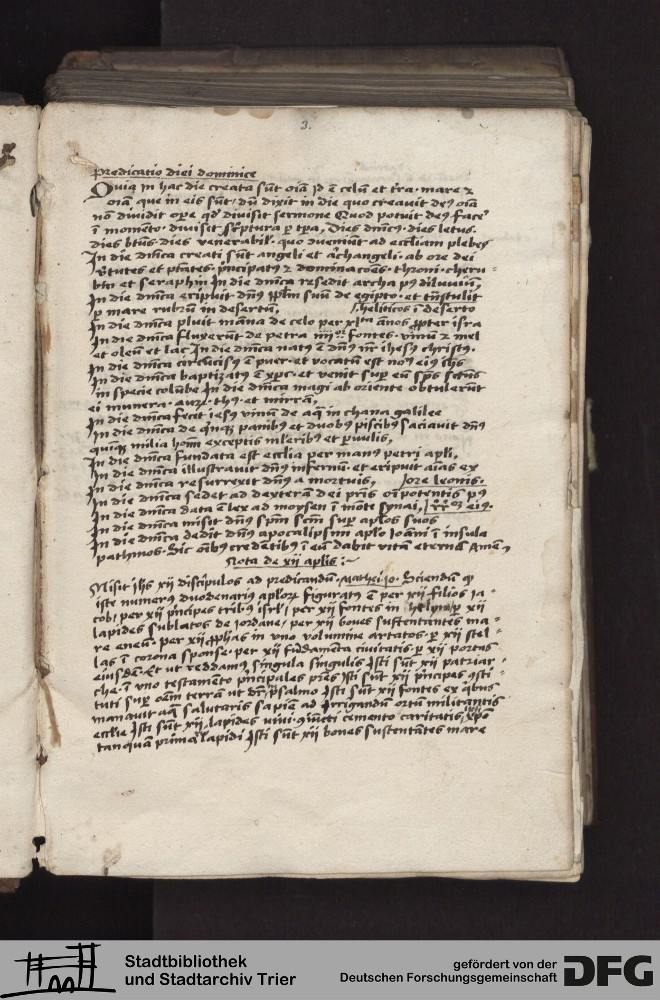 3.
Predicatio diei dominice
Quia in hac die creata sūt oīa id ē celū et t̄ra · mare ⁊
oīa que in eis sūt / dū dixit in die quo creavit deꝰ oīa
nō dividit oꝑe qd̓ divisit sermone Quod potuit deꝰ face᷑
ī momēto · diviset · sc̓ptura ꝑ tꝑa, Dies dn̄icꝰ · dies letus ·
dies btūs · dies venerabil᷑ · quo dveniūt ad eccl̄iam plebes
In die dn̄ica creati sūt angeli et ar̄changeli · ab ore dei
v̓tutes et pt̄ates · p̓ncipatꝰ ⁊ dominac̄oēs · throni · cheru-
bin et seraphin In die dn̄ica resedit archa pꝰ diluviū,
In die dn̄ica eripuit dn̄s ppl̄m suū de egipto · et tn̄stulit
ꝑ mare rubrū in desertū, / helíticos ī deserto
In die dn̄ica pluit māna de celo per xl ānos ꝓpter isra
In die dn̄ica fluxerūt de petra iiiiᵒʳ fontes · vinū ⁊ mel
et oleū et lac In die dn̄ica natꝰ ē dn̄s nr̄ ihesus christꝰ ·
In die dn̄ica circūcisꝰ ē puer · et vocatū est nom̄ eiꝰ ihs
In die dn̄ica baptizatꝰ ē xp̄c · et venit suꝑ eū sp̄s sc̄tus
in specie colūbe In die dn̄ica magi ab oriente obtulerūt
ei munera · aurū · thꝰ · et mirrā,
In die dn̄ica fecit iesꝰ vinum de aq̄ in chana galilee
In die dn̄ica de q̓nqꝫ panibꝰ et duobꝰ piscibꝰ saciavit dn̄s
quīqꝫ milia hom̄ exceptis ml̓eribꝰ et ꝑvulis,
In die dn̄ica fundata est eccl̄ia per manꝰ petri apl̄i,
In die dn̄ica illustravit dn̄s infernū · et eripuit aīas ex
In die dn̄ica resurrexit dn̄s a mortuis, / ore leonis ·
In die dn̄ica sedet ad dexterā dei pr̄is oīpotentis pꝰ
In die dn̄ica data ē lex ad moysen ī mōte synai, / eiꝰ ·
In die dn̄ica misit dn̄s sp̄m sc̄m suꝑ apl̄os suos
In die dn̄ica dedit dn̄s apocalipsim apl̄o Ioāni ī insula
pathmos · Sic oībꝰ credētibꝰ ī eū dabit vitā eternā Amen,
Nota de xij aplis :~
Misit ihs xij discipulos ad predicandū · Mathei · 10 · Sciendū ꝙ
iste numerꝰ duodenariꝰ apl̄oꝝ figuratꝰ ē per xij filios ia-
cob / per xij p̓ncipes tribuū isrl̄ / per xij fontes in helym / ꝑ xij
lapides sublatos de iordane / per xij boves sustentantes ma-
re eneū · per xij ꝓph̄as in uno volumine artatos · ꝑ xij stel-
las ī corona sponse · per xij fūdamēta civitatis · ꝑ xij portas
eiusdē · Et ut reddamꝰ singula singulis Isti sūt xij patriar-
che · ī uno testamēto p̓ncipales pr̄es Isti sūt xij p̓ncipes ꝯsti-
tuti suꝑ oēm terrā ut dr̄ ī psalmo Isti sūt xij fontes ex q̓bus
manavit aq̄ salutaris sapiē ad irrigandū ortū militantis
eccl̄ie Isti sūt xij lapides vivi · ꝯiūcti cemento caritatis xp̄o
tanquā primo lapidi Isti sūt xij boves sustentātes mare
Stadtbibliothek
und Stadtarchiv Trier
gefördert von der
Deutschen Forschungsgemeinschaft
DFG